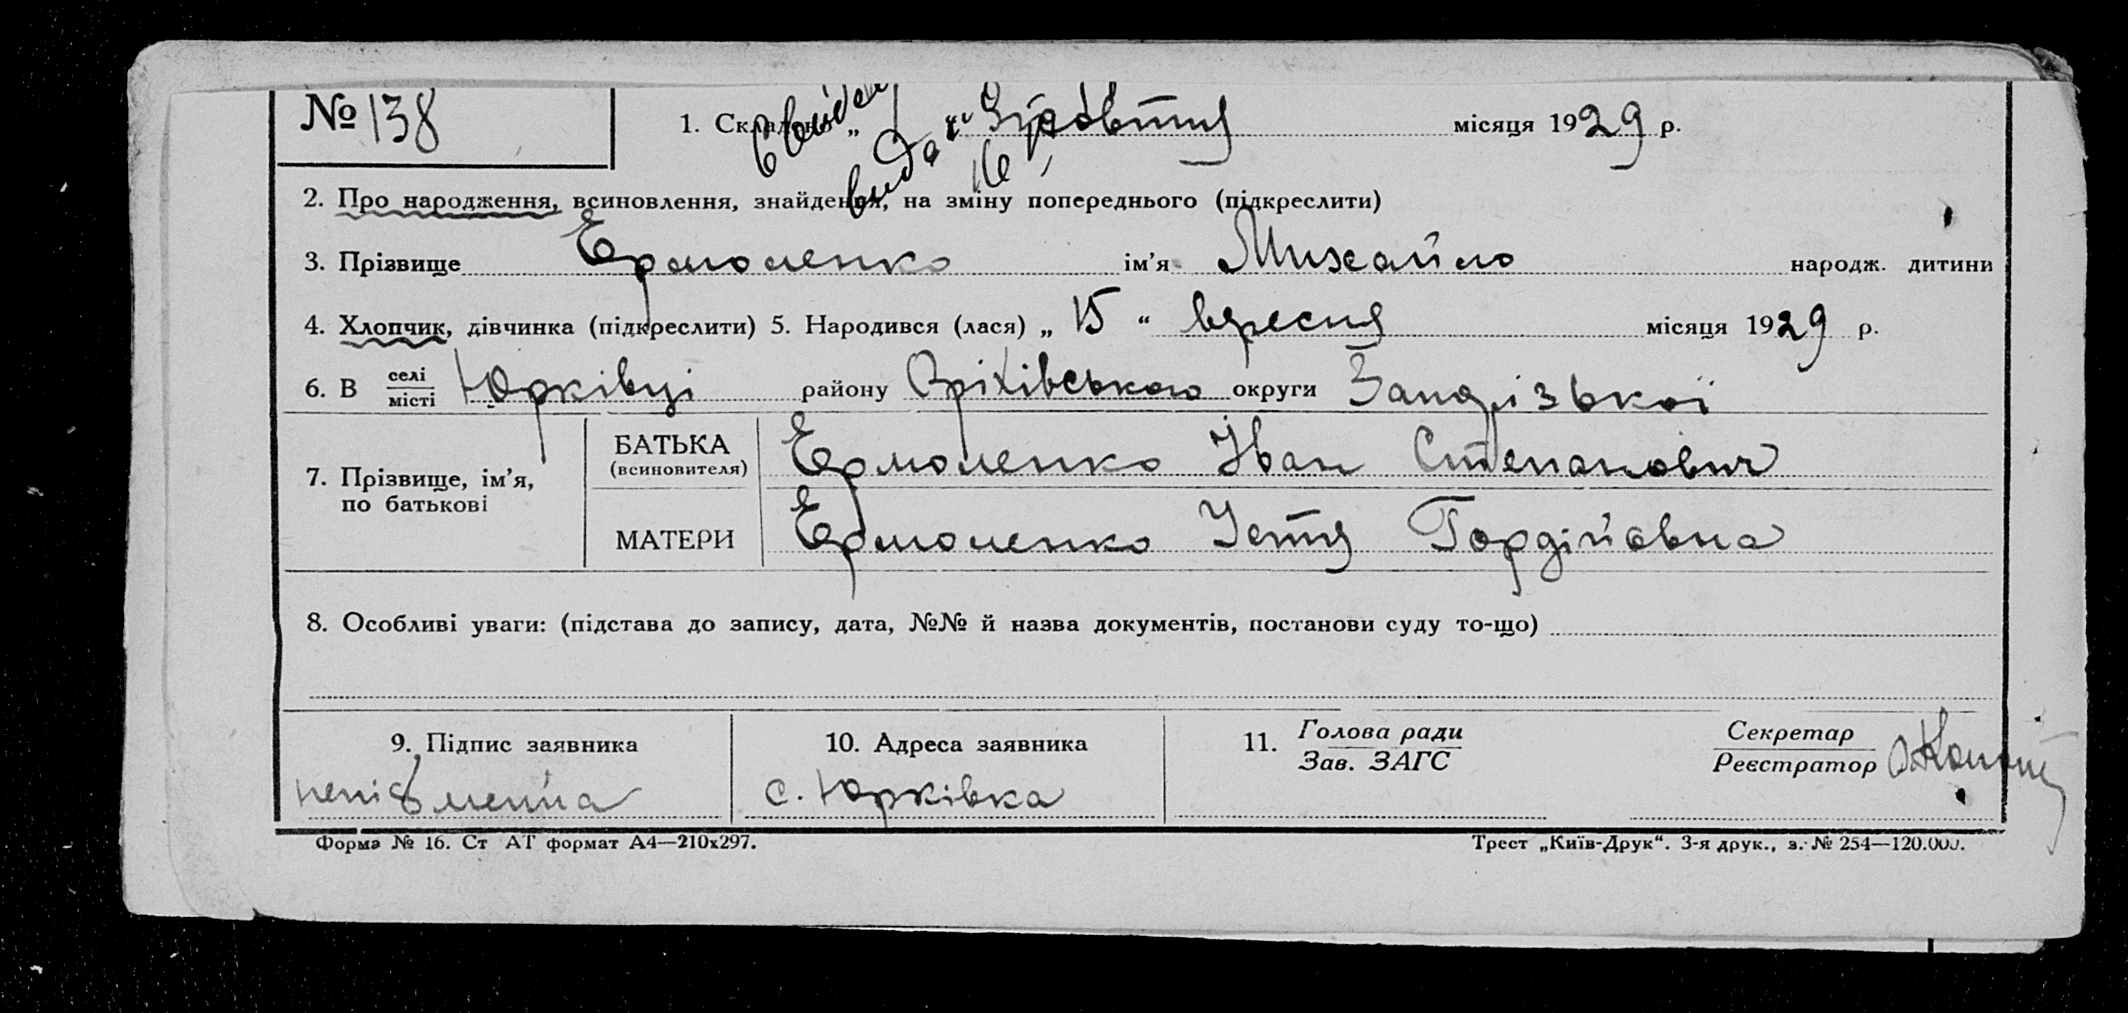 № 138
1. Складено „ 1 " жовтня місяця 1929 р.
Свідоц
видан
2. Про народження, всиновлення, знайдення, на зміну попереднього (підкреслити)
3. Прізвище Ермоленко ім'я Михайло народж. дитини
4. Хлопчик, дівчинка (підкреслити) 5. Народився (лася) „ 15 “ вересня місяця 1929 р.
6. В селі Юрківці району Оріхівського округи Запорізької
місті
БАТЬКА Ермоленко Іван Степанович
(всиновителя)
7. Прізвище, ім'я,
по батькові
МАТЕРИ Ермоленко Устя Гордіївна
8. Особливі уваги: (підстава до запису, дата, №№ й назва документів, постанови суду то-що)
9. Підпис заявника 10. Адреса заявника 11. Голова ради Секретар
Зав. ЗАГС Реєстратор
непісьменна с. Юрківка
Форма № 16. Ст АТ формат А4—210х297. Трест „Київ-Друк“. 3-я друк., з. № 254—120.000.